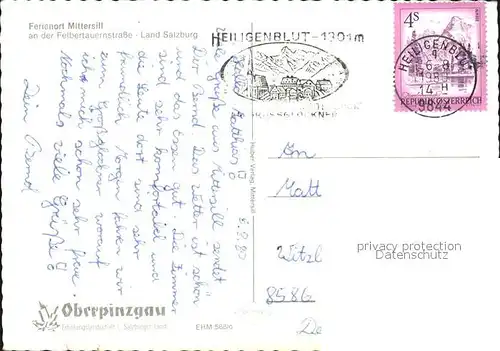 Ferienort Mittersill
an der Felbertauernstraße · Land Salzburg
HEILIGENBLUT - 1301m
GROSSGLOCKNER
HEILIGENBLUT
14
9844
4S
REPUBLIK ÖSTERREICH
Hallo Matthias!
Viele Grüße aus Mittersill sendet
Dir Bernd. Das Wetter ist schön
und das Essen gut. Die Zimmer
sind sehr komfortabel und
die Leute dort sind sehr
freundlich. Morgen fahren wir
zum Großglockner worauf
ich mich schon sehr freue.
Nochmals viele Grüße
Dein Bernd
An
Matt
Witzl
8586
De
privacy protection
Datenschutz
Oberpinzgau
EHM 568/c